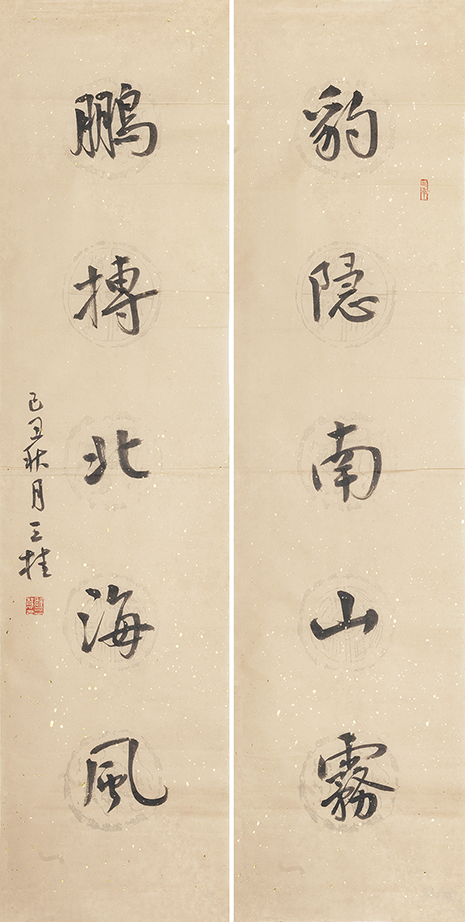 豹隱南山霧
鵬摶北海風
己丑秋月三桂